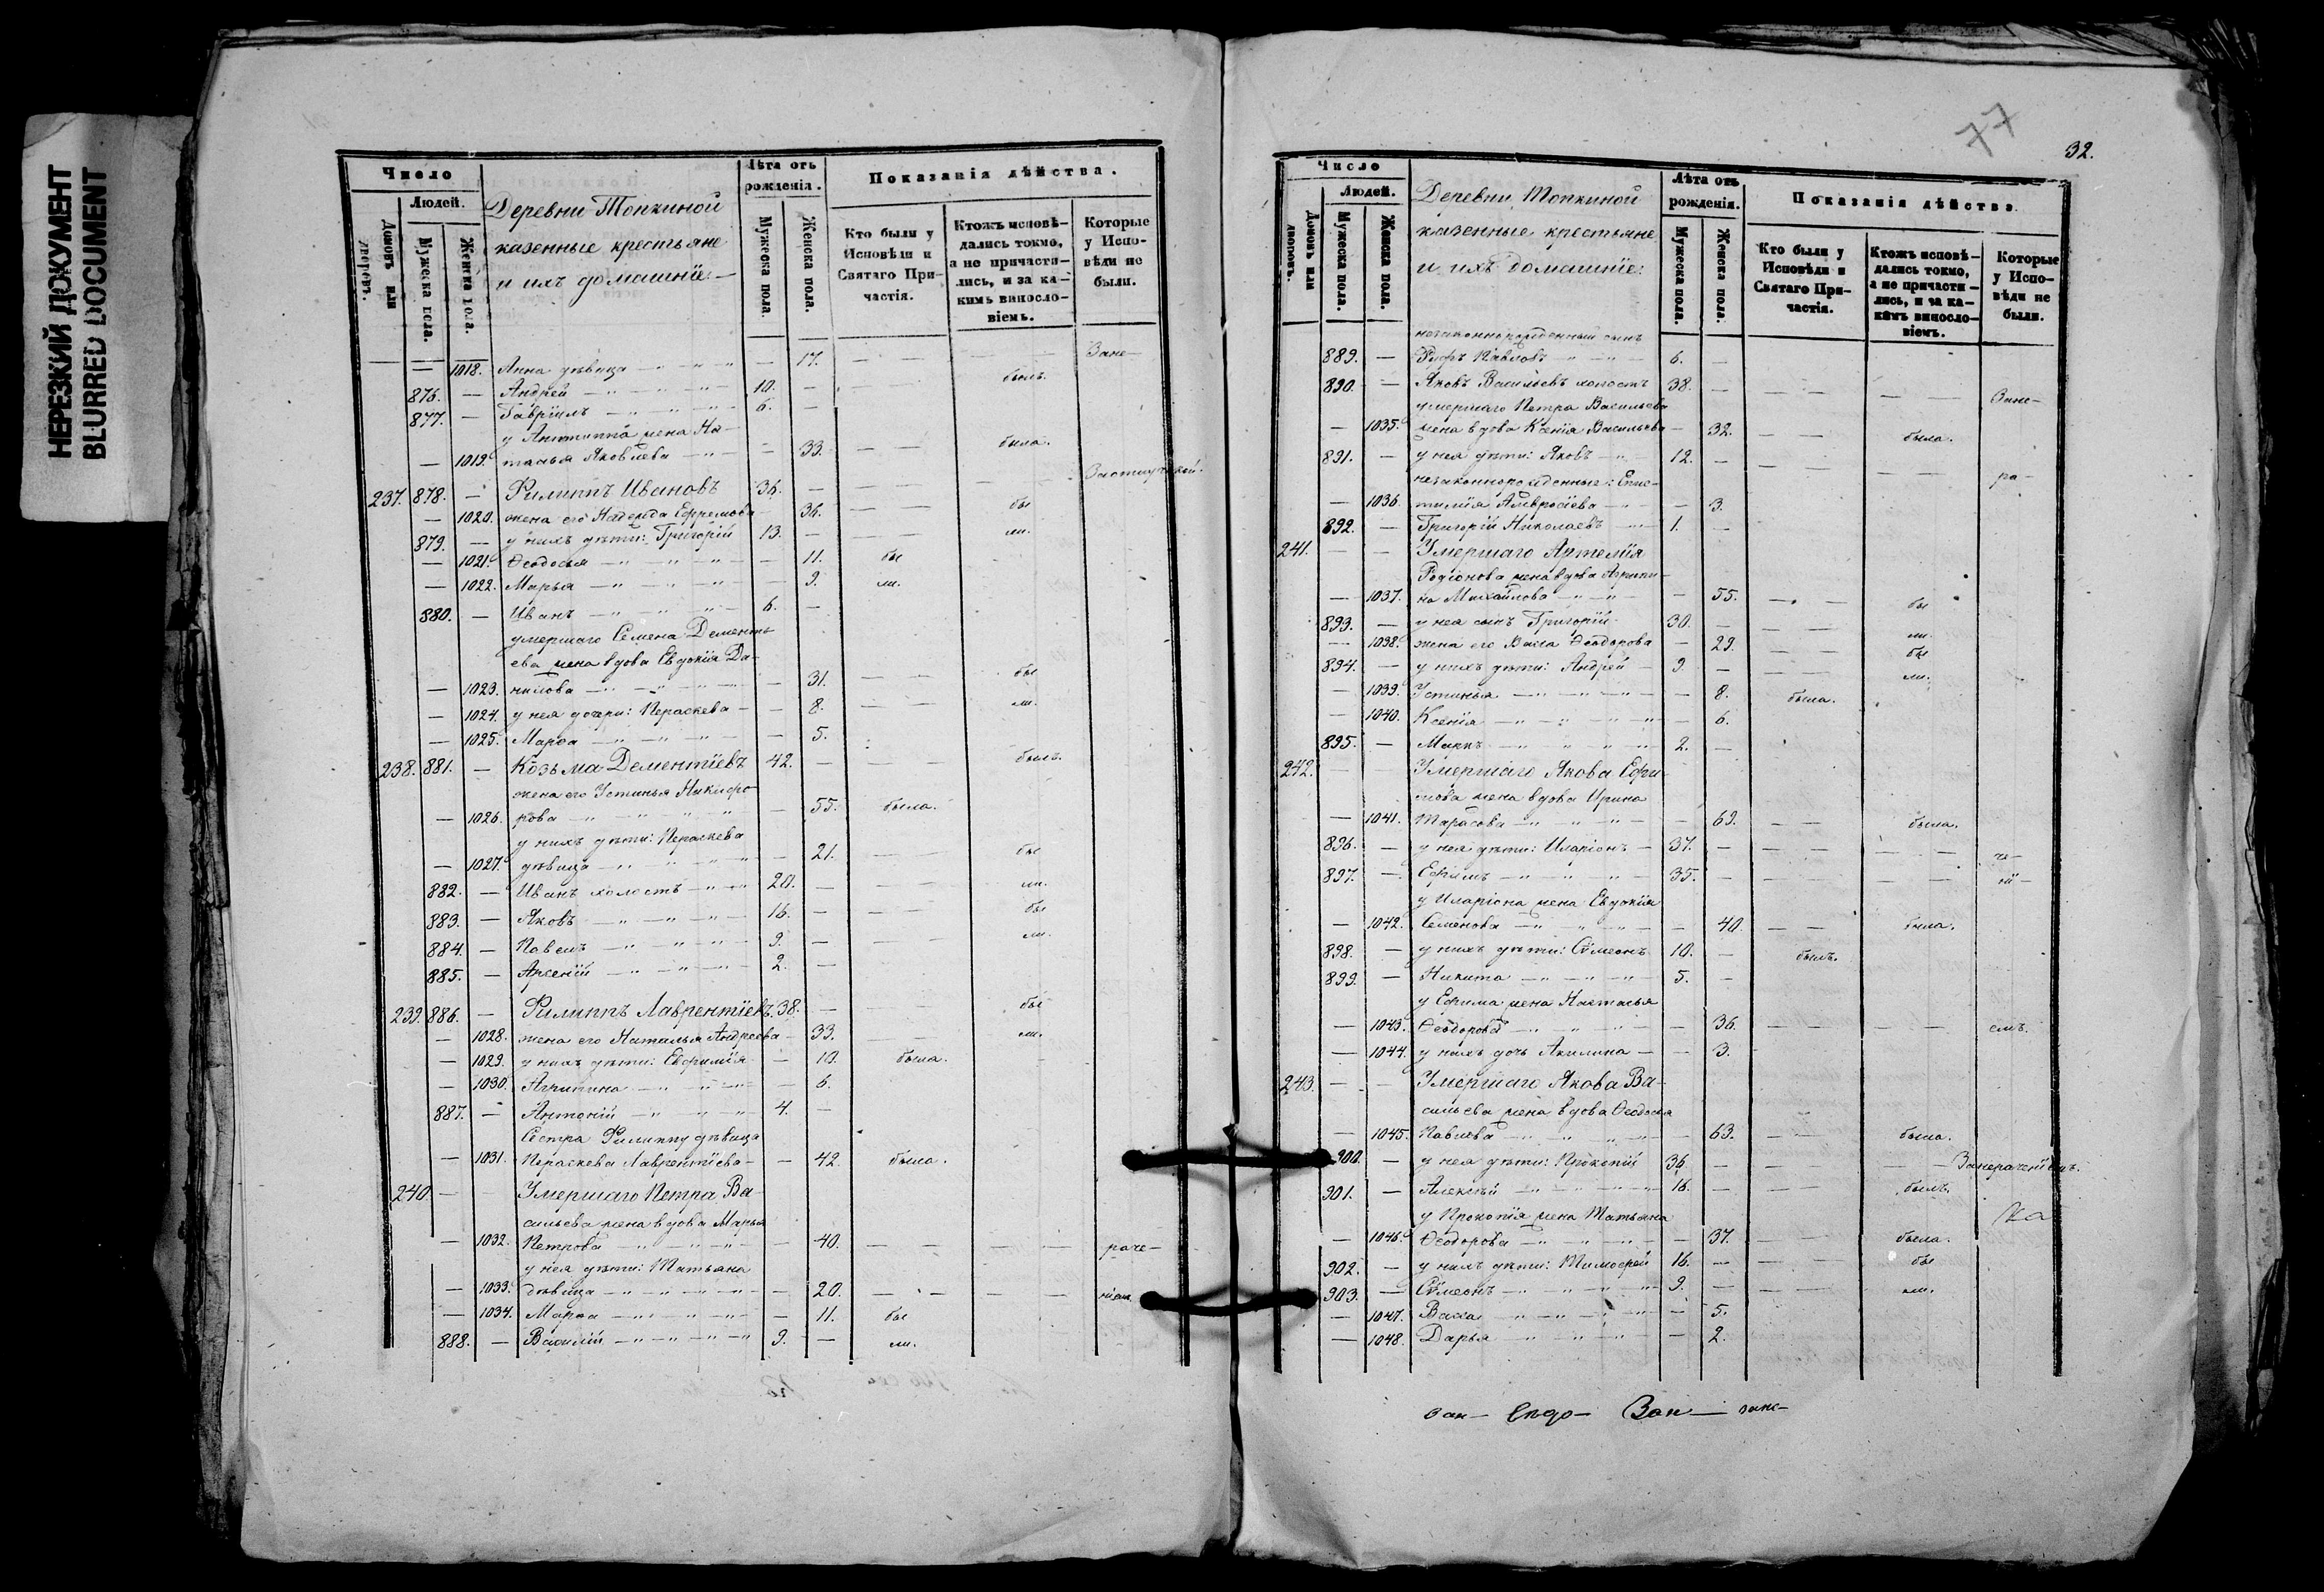 НЕРЕЗКИЙ ДОКУМЕНТ
BLURRED DOCUMENT
Число
Людей.
Домовъ или дворовъ.
Мужеска пола.
Женска пола.
Деревни Топкиной
казенные крестьяне
и ихъ домашніе:
Лѣта отъ рожденія.
Мужеска пола.
Женска пола.
Показанія дѣйства.
Кто были у Исповѣди и Святаго Причастія.
Ктожъ исповѣдались токмо, а не причастились, и за какимъ винословіемъ.
Которые у Исповѣди не были.
— 1018. Анна дѣвица — 17. — — — — Зане—
876. — Андрей — 10. — — — былъ.
877. — Гавріилъ — 6. —
у Антиппа жена На-
— 1019. талья Яковлева — 33. — — была.
237. 878. — Филиппъ Ивановъ 36. — — — — Заотлучкой.
— 1020. жена его Надежда Ефремова 36. — — бы
879. — у нихъ дѣти: Григорій 13. — — — ли.
— 1021. Ѳеодосья — 11. бы
— 1022. Марья — 9. ли.
880. — Иванъ — 6. —
умершаго Семена Дементь-
ева жена вдова Евдокія Да-
— 1023. нилова — 31. — — бы
— 1024. у нея дочери: Параскева — 8. — — ли.
— 1025. Марѳа — 5.
238. 881. — Козьма Дементіевъ 42. — — — былъ.
жена его Устинья Никифо-
— 1026. рова — 55. была.
у нихъ дѣти: Параскева
— 1027. дѣвица — 21. — — бы
882. — Иванъ холостъ — 20. — — — ли.
883. — Яковъ — 16. — — — бы
884. — Павелъ — 9. — — — ли.
885. — Арсеній — 2. —
239. 886. — Филиппъ Лаврентіевъ 38. — — — бы
— 1028. жена его Наталья Андреева — 33. — — ли.
— 1029. у нихъ дѣти: Евфимія — 10. была.
— 1030. Агрипина — 6.
887. — Антоній — 4. —
Сестра Филиппу дѣвица
— 1031. Параскева Лаврентіева — 42. была.
240. — — Умершаго Петра Ва-
сильева жена вдова Марья
— 1032. Петрова — 40. — — — — раче—
у нея дѣти: Татьяна
— 1033. дѣвица — 20. — — — — ніемъ
— 1034. Марѳа — 11. бы
888. — Василій — 9. — ли.
77
32.
Число
Людей.
Домовъ или дворовъ.
Мужеска пола.
Женска пола.
Деревни Топкиной
казенные крестьяне
и ихъ домашніе:
Лѣта отъ рожденія.
Мужеска пола.
Женска пола.
Показанія дѣйства
Кто были у Исповѣди и Святаго Причастія.
Ктожъ исповѣдались токмо, а не причастились, и за какимъ винословіемъ.
Которые у Исповѣди не были.
незаконнорожденный сынъ
889. — Руфъ Павловъ — 6. —
890. — Яковъ Васильевъ холостъ 38. — — — — — Зане—
умершаго Петра Васильева
— 1035. жена вдова Ксенія Васильева — 32. — — была.
891. — у нея дѣти: Яковъ — 12. — — — — — ра—
незаконнорожденные: Епис-
— 1036. тилія Амвросіева — 3.
892. — Григорій Николаевъ — 1. —
241. — — Умершаго Артемія
Родіонова жена вдова Агрипи-
— 1037. на Михайлова — 55. — — бы
893. — у нея сынъ Григорій 30. — — — ли.
— 1038. жена его Васса Ѳеодорова — 29. — — бы
894. — у нихъ дѣти: Андрей — 9. — — — ли.
— 1039. Устинья — 8. была.
— 1040. Ксенія — 6.
895. — Маркъ — 2. —
242. — — Умершаго Якова Ефи-
мова жена вдова Ирина
— 1041. Тарасова — 69. — — была.
896. — у нея дѣти: Иларіонъ — 37. — — — — — че—
897. — Ефимъ — 35. — — — — — ні—
у Иларіона жена Евдокія
— 1042. Семенова — 40. — — была.
898. — у нихъ дѣти: Сѵмеонъ 10. — былъ.
899. — Никита — 5. —
у Ефима жена Настасья
— 1043. Ѳеодорова — 36. — — — емъ.
— 1044. у нихъ дочь Акилина — 3.
243. — — Умершаго Якова Ва-
сильева жена вдова Ѳеодосья
— 1045. Павлова — 63. — — была.
900. — у нея дѣти: Прокопій 36. — — — — Занераченіемъ.
901. — Алексѣй — 16. — — — былъ.
у Прокопія жена Татьяна
— 1046. Ѳеодорова — 37. — — была.
902. — у нихъ дѣти: Тимофей 16. — — — бы
903. — Сѵмеонъ — 9. — — — ли.
— 1047. Васса — 5.
— 1048. Дарья — 2.